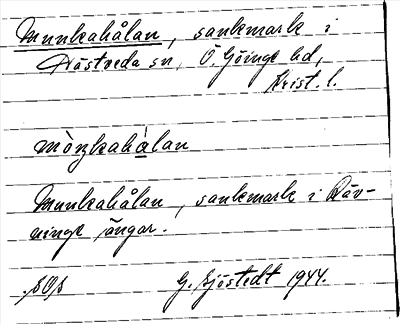 Munkahålan, sankmark i
Hästveda sn, Ö. Göinge hd,
Krist. l.
mòŋkahå̀lan
Munkahålan, sankmark i Röv-
ninge ängar.
G. Sjöstedt 1944.